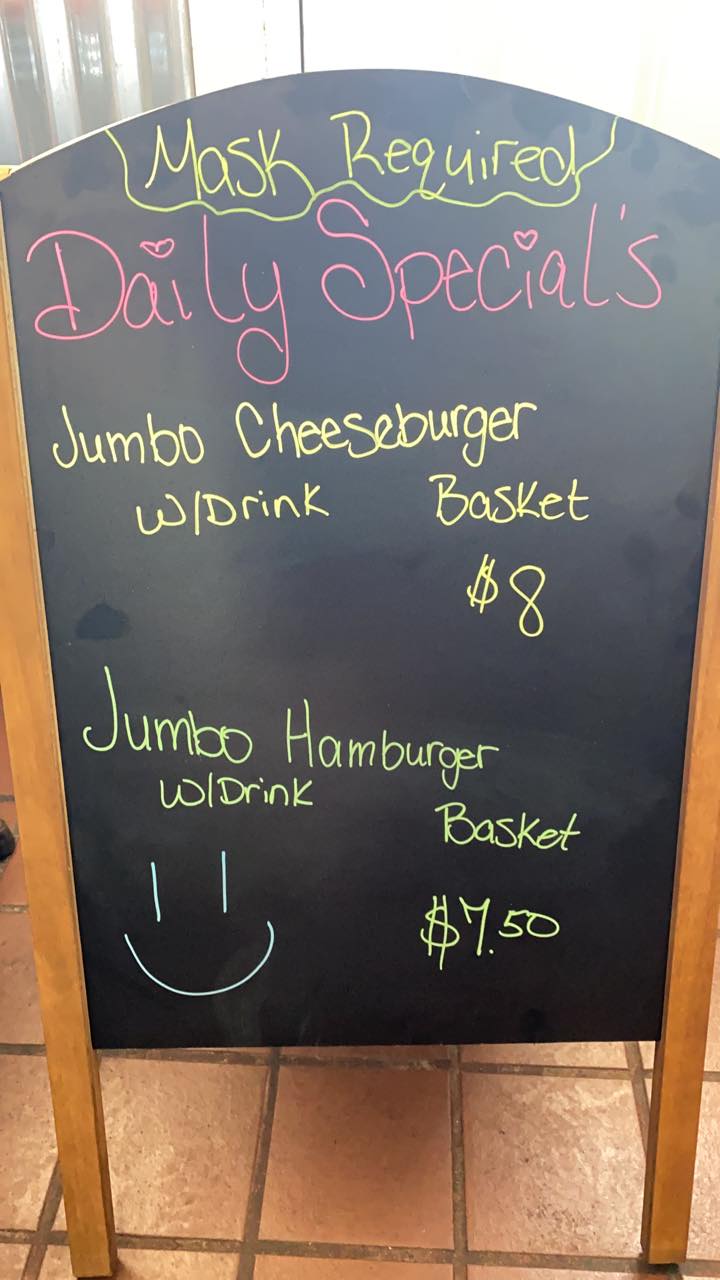 Mask Required
Daily Special's
Jumbo Cheeseburger
W/Drink Basket
$8
Jumbo Hamburger
W/Drink
Basket
$7.50